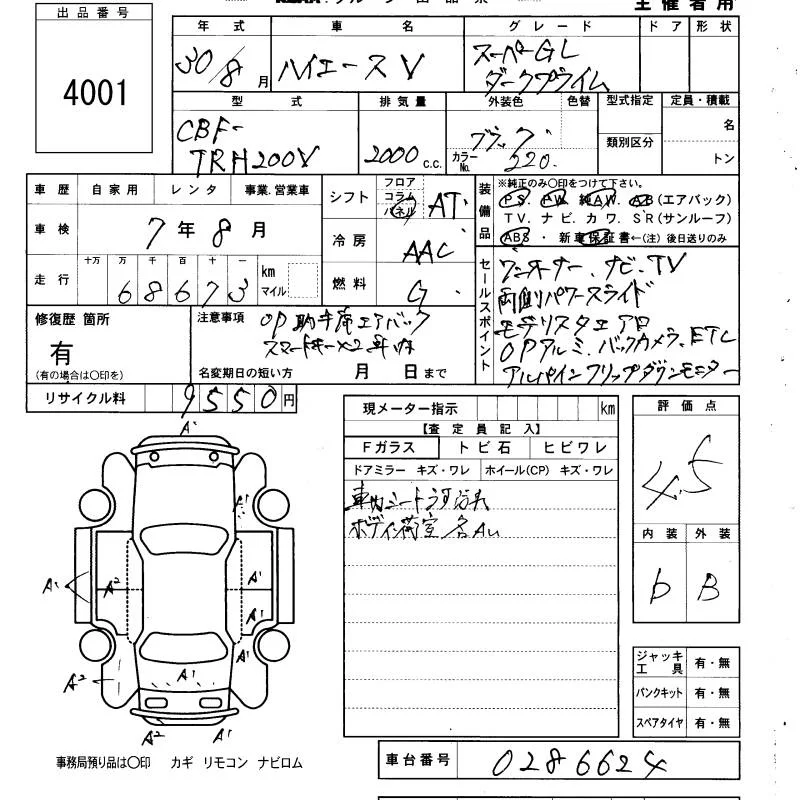 出品番号
4001
主催者用
年式
車名
グレード
ドア
形状
30/8月
ハイエースV
スーパーGL
ダークプライム
型式
排気量
外装色
色替
型式指定
定員・積載
CBF-
TRH200V
2000 c.c.
ブラック
カラーNo. 220
類別区分
名
トン
車歴
自家用
レンタ
事業.営業車
車検
7年8月
走行
十万 万 千 百 十 一
68673
km
マイル
シフト
フロア
コラム
パネル
AT
冷房
AAC
燃料
G
装備品
※純正のみ〇印をつけて下さい。
PS. PW. 純AW. AB(エアバック)
TV. ナビ. カワ. SR(サンルーフ)
ABS ・ 新車保証書←(注) 後日送りのみ
セールスポイント
ワンオーナー、ナビ、TV
両側パワースライド
モデリスタエアロ
OPアルミ、バックカメラ、ETC
アルパインフリップダウンモニター
修復歴 箇所
有
(有の場合は〇印を)
注意事項
OP助手席エアバック
スマートキー×2
名変期日の短い方
月 日まで
リサイクル料
9550円
現メーター指示
km
【査定員記入】
Fガラス
トビ石
ヒビワレ
ドアミラー キズ・ワレ
ホイール(CP) キズ・ワレ
車内シート汚れ
ボディ荷室各AU
評価点
4.5
内装
外装
b
B
A1
A1
A1
A2
A1
A1
A1
A1
A2
A2
A1
ジャッキ
工具
有・無
パンクキット
有・無
スペアタイヤ
有・無
事務局預り品は〇印 カギ リモコン ナビロム
車台番号
0286624